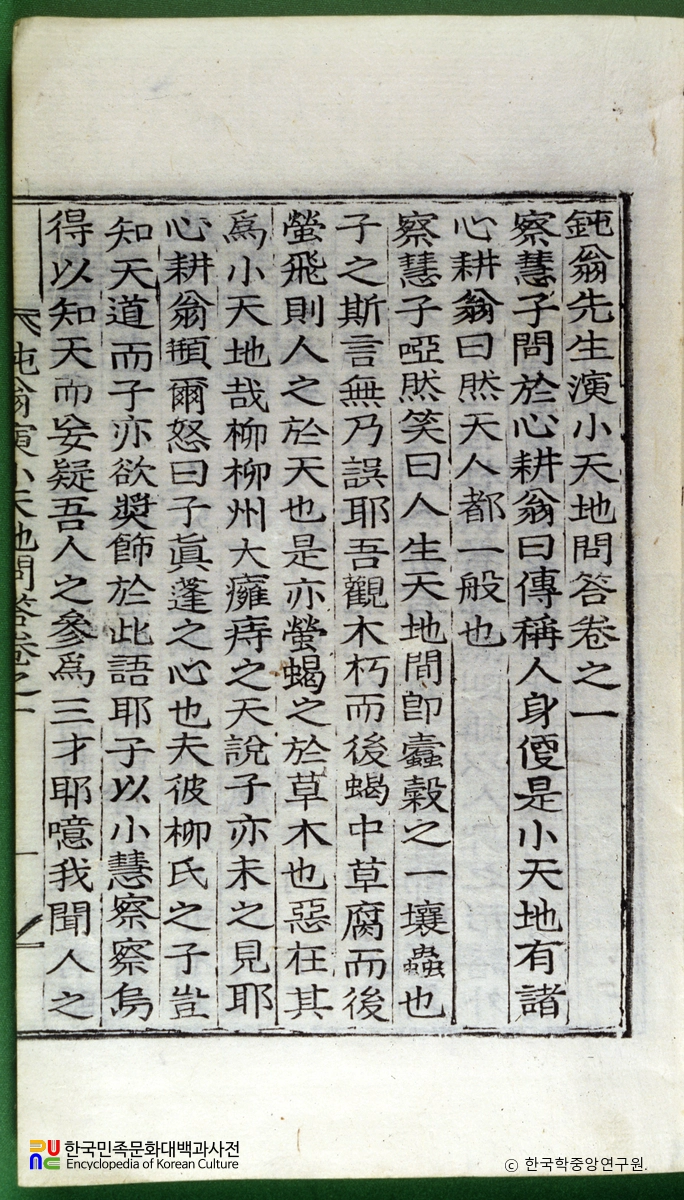 鈍翁先生演小天地問答卷之一
察慧子問於心耕翁曰傳稱人身便是小天地有諸
心耕翁曰然天人都一般也
察慧子啞然笑曰人生天地間卽蠹穀之一壤蟲也
子之斯言無乃誤耶吾觀木朽而後蝎中草腐而後
螢飛則人之於天也是亦螢蝎之於草木也惡在其
爲小天地哉柳柳州大癰痔之天說子亦未之見耶
心耕翁頩爾怒曰子眞蓬之心也夫彼柳氏之子豈
知天道而子亦欲奬飾於此語耶子以小慧察察烏
得以知天而妄疑吾人之參爲三才耶噫我聞人之
鈍翁演小天地問答卷之一
한국민족문화대백과사전
Encyclopedia of Korean Culture
ⓒ 한국학중앙연구원.